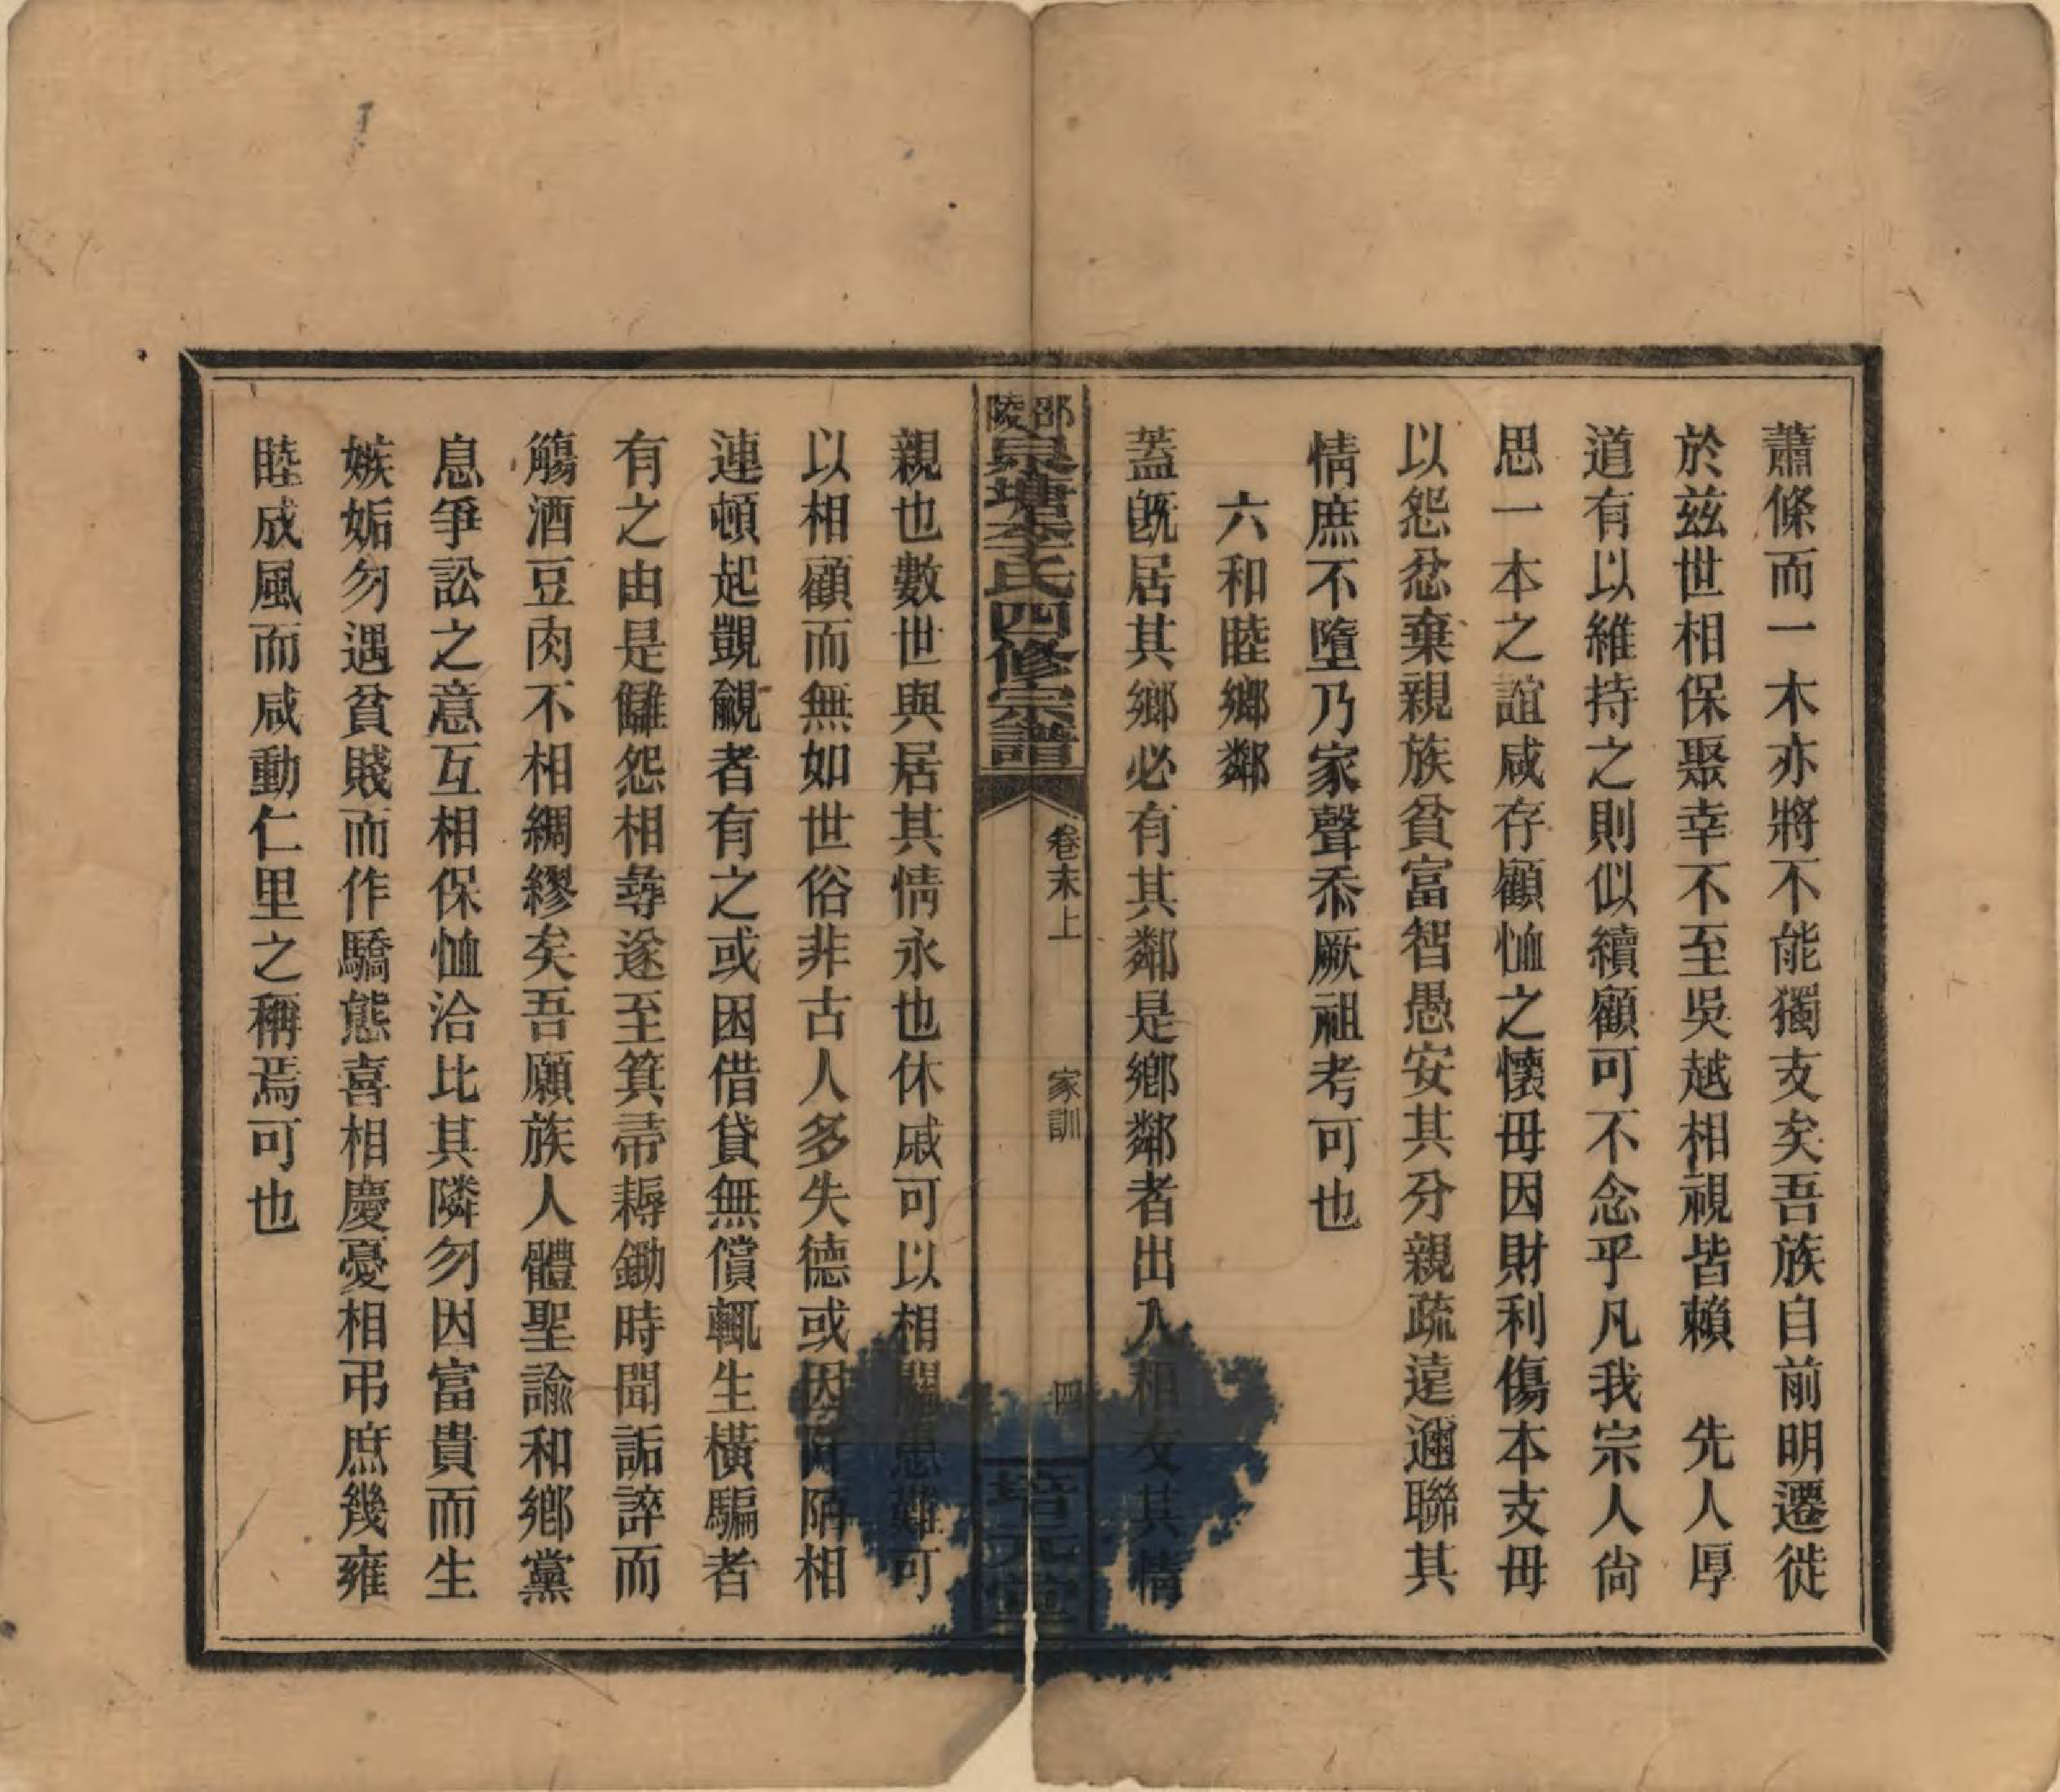 蕭條而一木亦將不能獨支矣吾族自前明遷徙
於兹世相保聚幸不至吳越相視皆賴　先人厚
道有以維持之則似續顧可不念乎凡我宗人尙
思一本之誼咸存顧恤之懷毋因財利傷本支毋
以怨忿棄親族貧富智愚安其分親疏遠邇聯其
情庶不墮乃家聲忝厥祖考可也
六和睦鄉鄰
蓋旣居其鄉必有其鄰是鄉鄰者出入相友其情
邵陵泉塘李氏四修宗譜
卷末上
家訓
四
培元堂
親也數世與居其情永也休戚可以相關患難可
以相顧而無如世俗非古人多失德或因阡陌相
連頓起覬覦者有之或因借貸無償輒生橫騙者
有之由是讎怨相尋遂至箕帚耨鋤時聞詬誶而
觴酒豆肉不相綢繆矣吾願族人體聖諭和鄉黨
息爭訟之意互相保恤洽比其隣勿因富貴而生
嫉妬勿遇貧賤而作驕態喜相慶憂相弔庶幾雍
睦成風而咸動仁里之稱焉可也